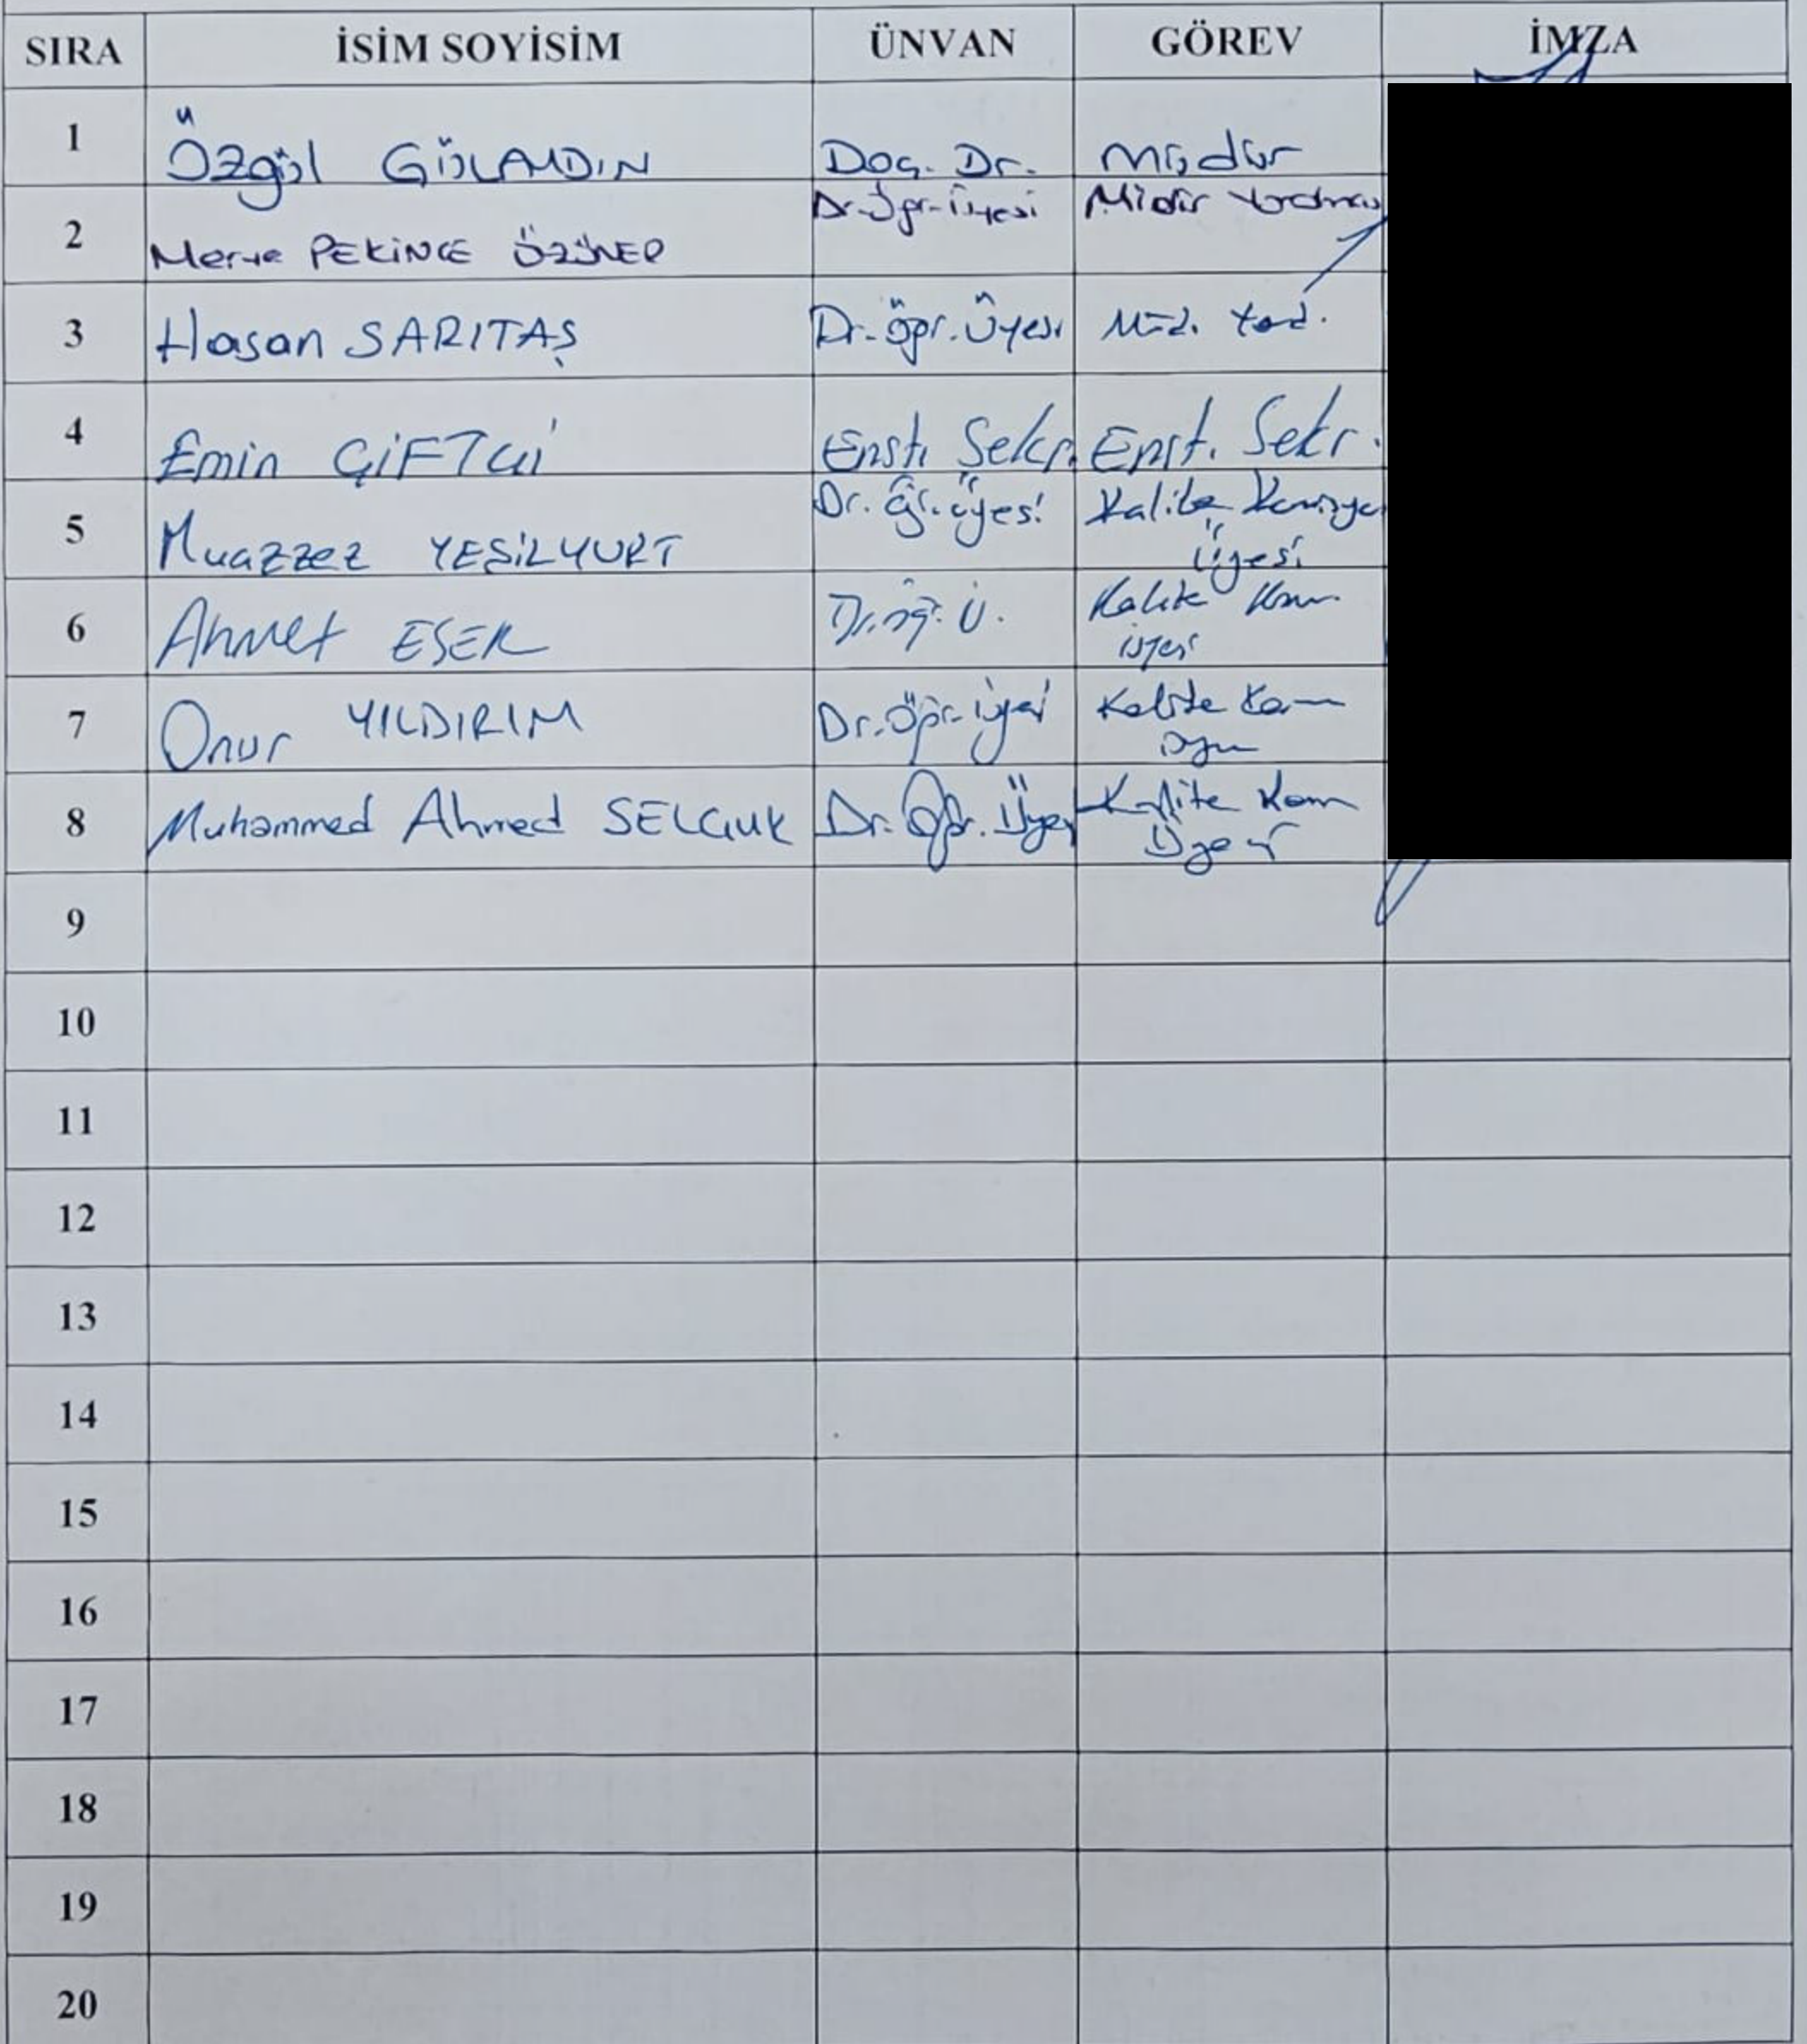 SIRA İSİM SOYİSİM ÜNVAN GÖREV İMZA
1 Özgül GÜLAYDIN Doç. Dr. Müdür
2 Merve PEKİNCE ÖZÖNER Dr. Öğr. Üyesi Müdür Yardımcısı
3 Hasan SARITAŞ Dr. Öğr. Üyesi Müd. Yard.
4 Emin ÇİFTÇİ Enst. Sekr. Enst. Sekr.
5 Muazzez YEŞİLYURT Dr. Öğr. Üyesi Kalite Komisyon
Üyesi
6 Ahmet ESER Dr. Öğ. Ü. Kalite Kom.
üyesi
7 Onur YILDIRIM Dr. Öğr. Üyesi Kalite Kom
üyesi
8 Muhammed Ahmed SELÇUK Dr. Öğr. Üyesi Kalite Kom
Üyesi
9
10
11
12
13
14
15
16
17
18
19
20